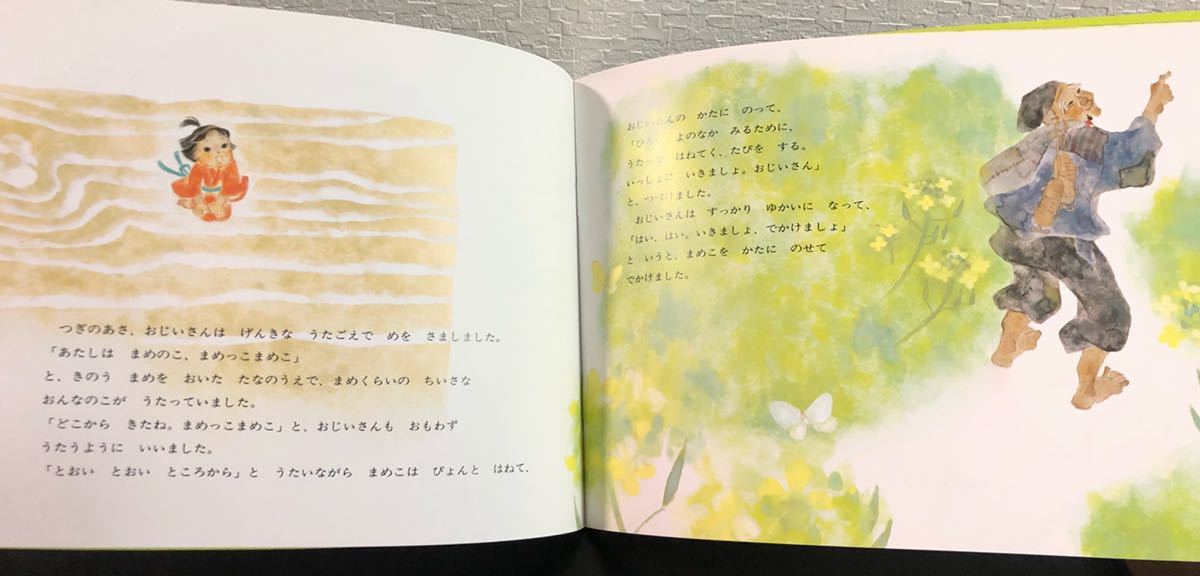 つぎのあさ、おじいさんは　げんきな　うたごえで　めを　さましました。
「あたしは　まめのこ、まめっこまめこ」
と、きのう　まめを　おいた　たなのうえで、まめくらいの　ちいさな
おんなのこが　うたっていました。
「どこから　きたね。まめっこまめこ」と、おじいさんも　おもわず
うたうように　いいました。
「とおい　とおい　ところから」と　うたいながら　まめこは　ぴょんと　はねて、
おじいさんの　かたに　のって、
「ひろい　よのなか　みるために、
うたって　はねてく、たびを　する。
いっしょに　いきましょ。おじいさん」
と、つづけました。
おじいさんは　すっかり　ゆかいに　なって、
「はい、はい。いきましょ、でかけましょ」
と　いうと、まめこを　かたに　のせて
でかけました。